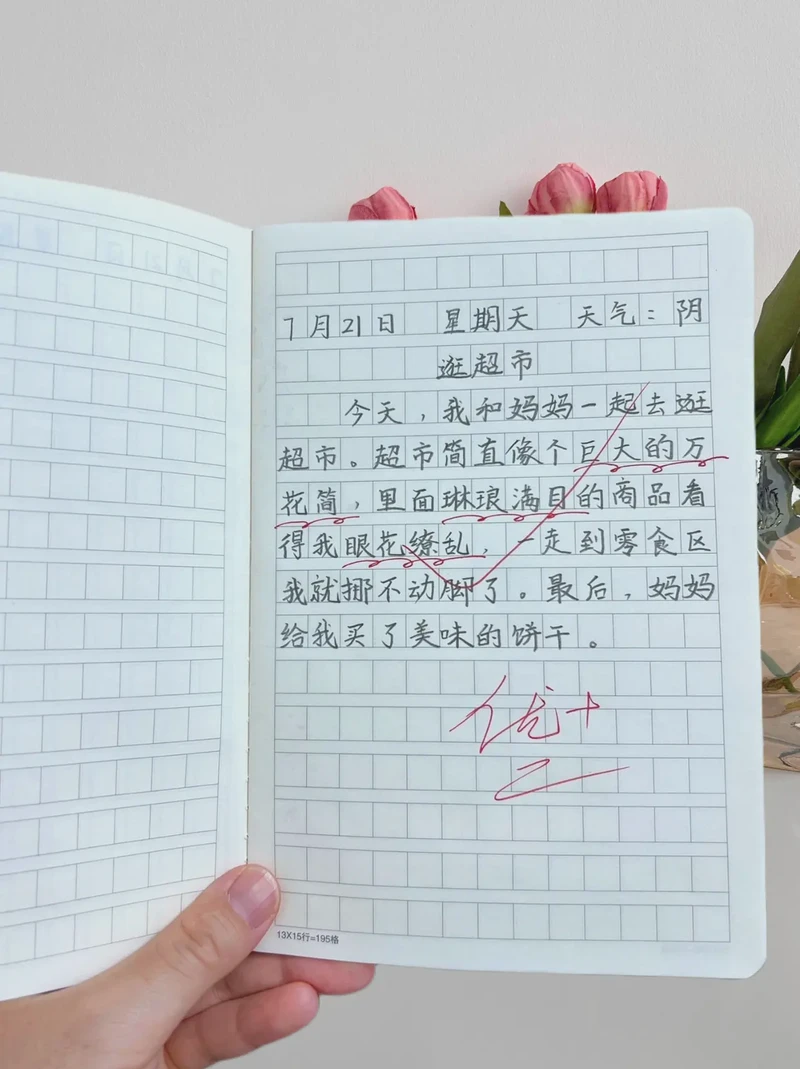 7月21日 星期天 天气：阴
逛超市
今天，我和妈妈一起去逛
超市。超市简直像个巨大的万
花筒，里面琳琅满目的商品看
得我眼花缭乱，一走到零食区
我就挪不动脚了。最后，妈妈
给我买了美味的饼干。
优+
13X15行=195格